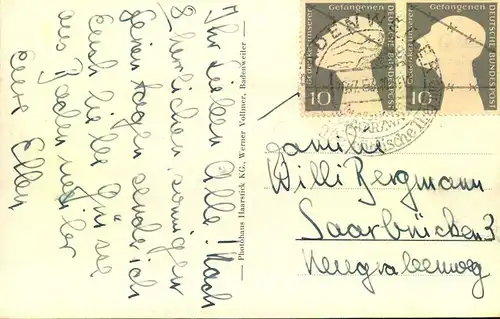 Ihr lieben Alle! Nach
8 herrlichen, sonnigen
Ferientagen sende ich
Euch liebe Grüsse
aus Badenweiler
Eure Ellen
— Photohaus Haarstick KG., Werner Vollmer, Badenweiler —
Gedenket unserer
Gefangenen
DEUTSCHE BUNDESPOST
10
Gedenket unserer
Gefangenen
DEUTSCHE BUNDESPOST
10
BADENWEILER
Familie
Willi Bergmann
Saarbrücken 3
Neugrabenweg